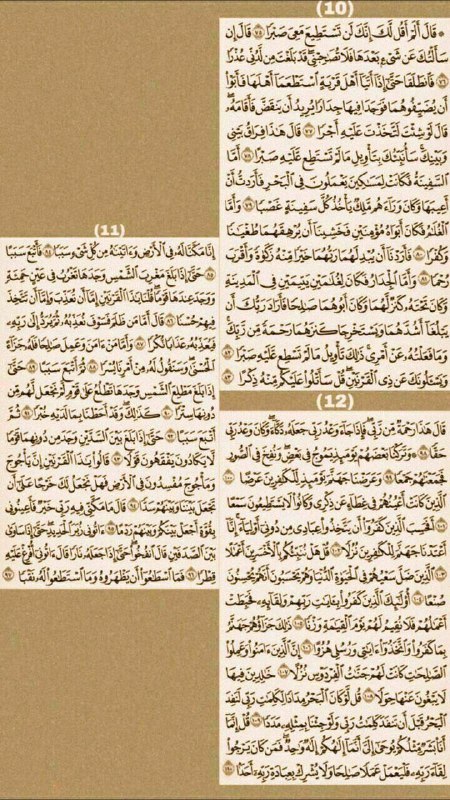 (10)
۞ قَالَ أَلَمْ أَقُل لَّكَ إِنَّكَ لَن تَسْتَطِيعَ مَعِيَ صَبْرًا ٧٥ قَالَ إِن
سَأَلْتُكَ عَن شَيْءٍ بَعْدَهَا فَلَا تُصَٰحِبْنِي قَدْ بَلَغْتَ مِن لَّدُنِّي عُذْرًا
٧٦ فَٱنطَلَقَا حَتَّىٰٓ إِذَآ أَتَيَآ أَهْلَ قَرْيَةٍ ٱسْتَطْعَمَآ أَهْلَهَا فَأَبَوْا۟
أَن يُضَيِّفُوهُمَا فَوَجَدَا فِيهَا جِدَارًا يُرِيدُ أَن يَنقَضَّ فَأَقَامَهُۥ
قَالَ لَوْ شِئْتَ لَتَّخَذْتَ عَلَيْهِ أَجْرًا ٧٧ قَالَ هَٰذَا فِرَاقُ بَيْنِي
وَبَيْنِكَ سَأُنَبِّئُكَ بِتَأْوِيلِ مَا لَمْ تَسْتَطِع عَّلَيْهِ صَبْرًا ٧٨ أَمَّا
ٱلسَّفِينَةُ فَكَانَتْ لِمَسَٰكِينَ يَعْمَلُونَ فِي ٱلْبَحْرِ فَأَرَدتُّ أَنْ
أَعِيبَهَا وَكَانَ وَرَآءَهُم مَّلِكٌ يَأْخُذُ كُلَّ سَفِينَةٍ غَصْبًا ٧٩ وَأَمَّا
ٱلْغُلَٰمُ فَكَانَ أَبَوَاهُ مُؤْمِنَيْنِ فَخَشِينَآ أَن يُرْهِقَهُمَا طُغْيَٰنًا
وَكُفْرًا ٨٠ فَأَرَدْنَآ أَن يُبْدِلَهُمَا رَبُّهُمَا خَيْرًا مِّنْهُ زَكَوٰةً وَأَقْرَبَ
رُحْمًا ٨١ وَأَمَّا ٱلْجِدَارُ فَكَانَ لِغُلَٰمَيْنِ يَتِيمَيْنِ فِي ٱلْمَدِينَةِ
وَكَانَ تَحْتَهُۥ كَنزٌ لَّهُمَا وَكَانَ أَبُوهُمَا صَٰلِحًا فَأَرَادَ رَبُّكَ أَن
يَبْلُغَآ أَشُدَّهُمَا وَيَسْتَخْرِجَا كَنزَهُمَا رَحْمَةً مِّن رَّبِّكَ
وَمَا فَعَلْتُهُۥ عَنْ أَمْرِي ذَٰلِكَ تَأْوِيلُ مَا لَمْ تَسْطِع عَّلَيْهِ صَبْرًا ٨٢
وَيَسْـَٔلُونَكَ عَن ذِي ٱلْقَرْنَيْنِ قُلْ سَأَتْلُوا۟ عَلَيْكُم مِّنْهُ ذِكْرًا ٨٣
(11)
إِنَّا مَكَّنَّا لَهُۥ فِي ٱلْأَرْضِ وَءَاتَيْنَٰهُ مِن كُلِّ شَيْءٍ سَبَبًا ٨٤ فَأَتْبَعَ سَبَبًا
٨٥ حَتَّىٰٓ إِذَا بَلَغَ مَغْرِبَ ٱلشَّمْسِ وَجَدَهَا تَغْرُبُ فِي عَيْنٍ حَمِئَةٍ
وَوَجَدَ عِندَهَا قَوْمًا قُلْنَا يَٰذَا ٱلْقَرْنَيْنِ إِمَّآ أَن تُعَذِّبَ وَإِمَّآ أَن تَتَّخِذَ
فِيهِمْ حُسْنًا ٨٦ قَالَ أَمَّا مَن ظَلَمَ فَسَوْفَ نُعَذِّبُهُۥ ثُمَّ يُرَدُّ إِلَىٰ رَبِّهِۦ
فَيُعَذِّبُهُۥ عَذَابًا نُّكْرًا ٨٧ وَأَمَّا مَنْ ءَامَنَ وَعَمِلَ صَٰلِحًا فَلَهُۥ جَزَآءً
ٱلْحُسْنَىٰ وَسَنَقُولُ لَهُۥ مِنْ أَمْرِنَا يُسْرًا ٨٨ ثُمَّ أَتْبَعَ سَبَبًا ٨٩ حَتَّىٰٓ
إِذَا بَلَغَ مَطْلِعَ ٱلشَّمْسِ وَجَدَهَا تَطْلُعُ عَلَىٰ قَوْمٍ لَّمْ نَجْعَل لَّهُم مِّن
دُونِهَا سِتْرًا ٩٠ كَذَٰلِكَ وَقَدْ أَحَطْنَا بِمَا لَدَيْهِ خُبْرًا ٩١ ثُمَّ
أَتْبَعَ سَبَبًا ٩٢ حَتَّىٰٓ إِذَا بَلَغَ بَيْنَ ٱلسَّدَّيْنِ وَجَدَ مِن دُونِهِمَا قَوْمًا
لَّا يَكَادُونَ يَفْقَهُونَ قَوْلًا ٩٣ قَالُوا۟ يَٰذَا ٱلْقَرْنَيْنِ إِنَّ يَأْجُوجَ
وَمَأْجُوجَ مُفْسِدُونَ فِي ٱلْأَرْضِ فَهَلْ نَجْعَلُ لَكَ خَرْجًا عَلَىٰٓ أَن
تَجْعَلَ بَيْنَنَا وَبَيْنَهُمْ سَدًّا ٩٤ قَالَ مَا مَكَّنِّي فِيهِ رَبِّي خَيْرٌ فَأَعِينُونِي
بِقُوَّةٍ أَجْعَلْ بَيْنَكُمْ وَبَيْنَهُمْ رَدْمًا ٩٥ ءَاتُونِي زُبَرَ ٱلْحَدِيدِ حَتَّىٰٓ إِذَا سَاوَىٰ
بَيْنَ ٱلصَّدَفَيْنِ قَالَ ٱنفُخُوا۟ حَتَّىٰٓ إِذَا جَعَلَهُۥ نَارًا قَالَ ءَاتُونِيٓ أُفْرِغْ عَلَيْهِ
قِطْرًا ٩٦ فَمَا ٱسْطَٰعُوٓا۟ أَن يَظْهَرُوهُ وَمَا ٱسْتَطَٰعُوا۟ لَهُۥ نَقْبًا ٩٧
(12)
قَالَ هَٰذَا رَحْمَةٌ مِّن رَّبِّي فَإِذَا جَآءَ وَعْدُ رَبِّي جَعَلَهُۥ دَكَّآءَ وَكَانَ وَعْدُ رَبِّي
حَقًّا ٩٨ ۞ وَتَرَكْنَا بَعْضَهُمْ يَوْمَئِذٍ يَمُوجُ فِي بَعْضٍ وَنُفِخَ فِي ٱلصُّورِ
فَجَمَعْنَٰهُمْ جَمْعًا ٩٩ وَعَرَضْنَا جَهَنَّمَ يَوْمَئِذٍ لِّلْكَٰفِرِينَ عَرْضًا ١٠٠
ٱلَّذِينَ كَانَتْ أَعْيُنُهُمْ فِي غِطَآءٍ عَن ذِكْرِي وَكَانُوا۟ لَا يَسْتَطِيعُونَ سَمْعًا
١٠١ أَفَحَسِبَ ٱلَّذِينَ كَفَرُوٓا۟ أَن يَتَّخِذُوا۟ عِبَادِي مِن دُونِيٓ أَوْلِيَآءَ إِنَّآ
أَعْتَدْنَا جَهَنَّمَ لِلْكَٰفِرِينَ نُزُلًا ١٠٢ قُلْ هَلْ نُنَبِّئُكُم بِٱلْأَخْسَرِينَ أَعْمَٰلًا
١٠٣ ٱلَّذِينَ ضَلَّ سَعْيُهُمْ فِي ٱلْحَيَوٰةِ ٱلدُّنْيَا وَهُمْ يَحْسَبُونَ أَنَّهُمْ يُحْسِنُونَ
صُنْعًا ١٠٤ أُو۟لَٰٓئِكَ ٱلَّذِينَ كَفَرُوا۟ بِـَٔايَٰتِ رَبِّهِمْ وَلِقَآئِهِۦ فَحَبِطَتْ
أَعْمَٰلُهُمْ فَلَا نُقِيمُ لَهُمْ يَوْمَ ٱلْقِيَٰمَةِ وَزْنًا ١٠٥ ذَٰلِكَ جَزَآؤُهُمْ جَهَنَّمُ
بِمَا كَفَرُوا۟ وَٱتَّخَذُوٓا۟ ءَايَٰتِي وَرُسُلِي هُزُوًا ١٠٦ إِنَّ ٱلَّذِينَ ءَامَنُوا۟ وَعَمِلُوا۟
ٱلصَّٰلِحَٰتِ كَانَتْ لَهُمْ جَنَّٰتُ ٱلْفِرْدَوْسِ نُزُلًا ١٠٧ خَٰلِدِينَ فِيهَا
لَا يَبْغُونَ عَنْهَا حِوَلًا ١٠٨ قُل لَّوْ كَانَ ٱلْبَحْرُ مِدَادًا لِّكَلِمَٰتِ رَبِّي لَنَفِدَ
ٱلْبَحْرُ قَبْلَ أَن تَنفَدَ كَلِمَٰتُ رَبِّي وَلَوْ جِئْنَا بِمِثْلِهِۦ مَدَدًا ١٠٩ قُلْ إِنَّمَآ
أَنَا۠ بَشَرٌ مِّثْلُكُمْ يُوحَىٰٓ إِلَيَّ أَنَّمَآ إِلَٰهُكُمْ إِلَٰهٌ وَٰحِدٌ فَمَن كَانَ يَرْجُوا۟
لِقَآءَ رَبِّهِۦ فَلْيَعْمَلْ عَمَلًا صَٰلِحًا وَلَا يُشْرِكْ بِعِبَادَةِ رَبِّهِۦٓ أَحَدًۢا ١١٠